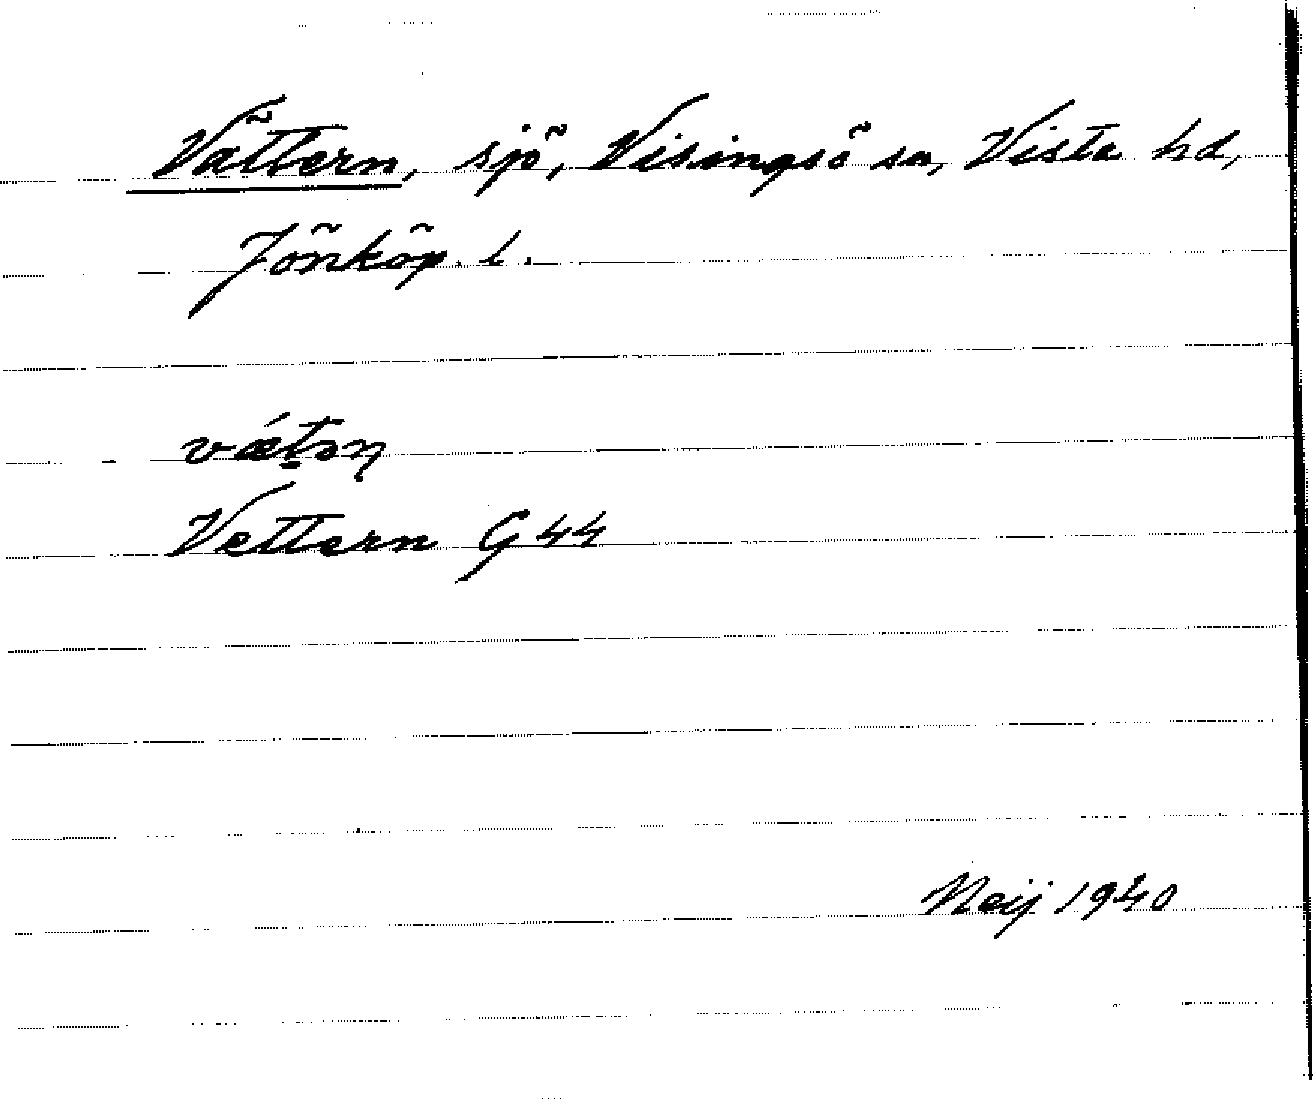 Vättern, sjö, Visingsö sn, Vista hd,
Jönköp. l.
vǽt̠ən̥
Vettern G 44
Neij 1940